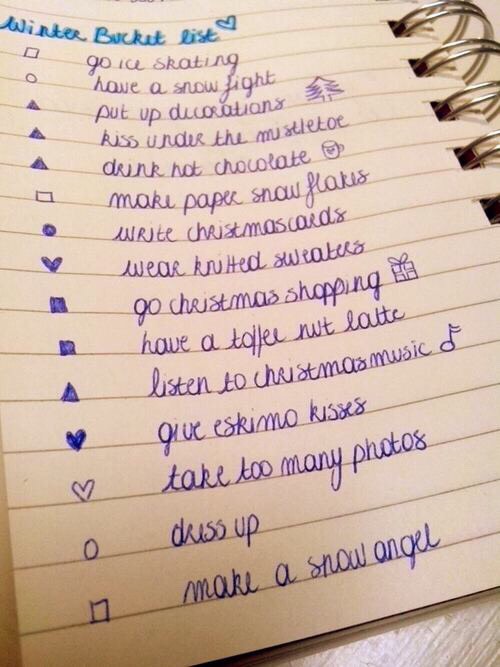 Winter Bucket list
go ice skating
have a snow fight
put up decorations
kiss under the mistletoe
drink hot chocolate
make paper snow flakes
write christmascards
wear knitted sweaters
go christmas shopping
have a toffee nut latte
listen to christmasmusic
give eskimo kisses
take too many photos
dress up
make a snow angel